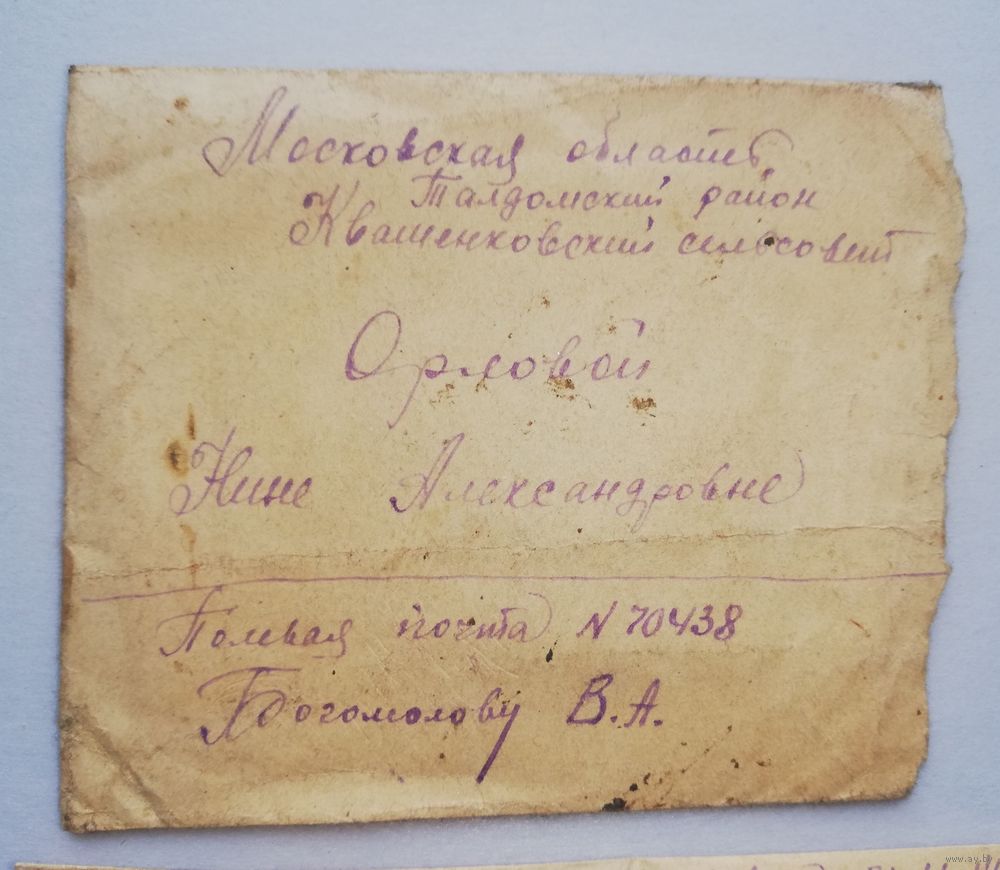 Московская область
Талдомский район
Квашенковский сельсовет
Орловой
Нине Александровне
Полевая почта N 70438
Богомолову В.А.
www.ay.by